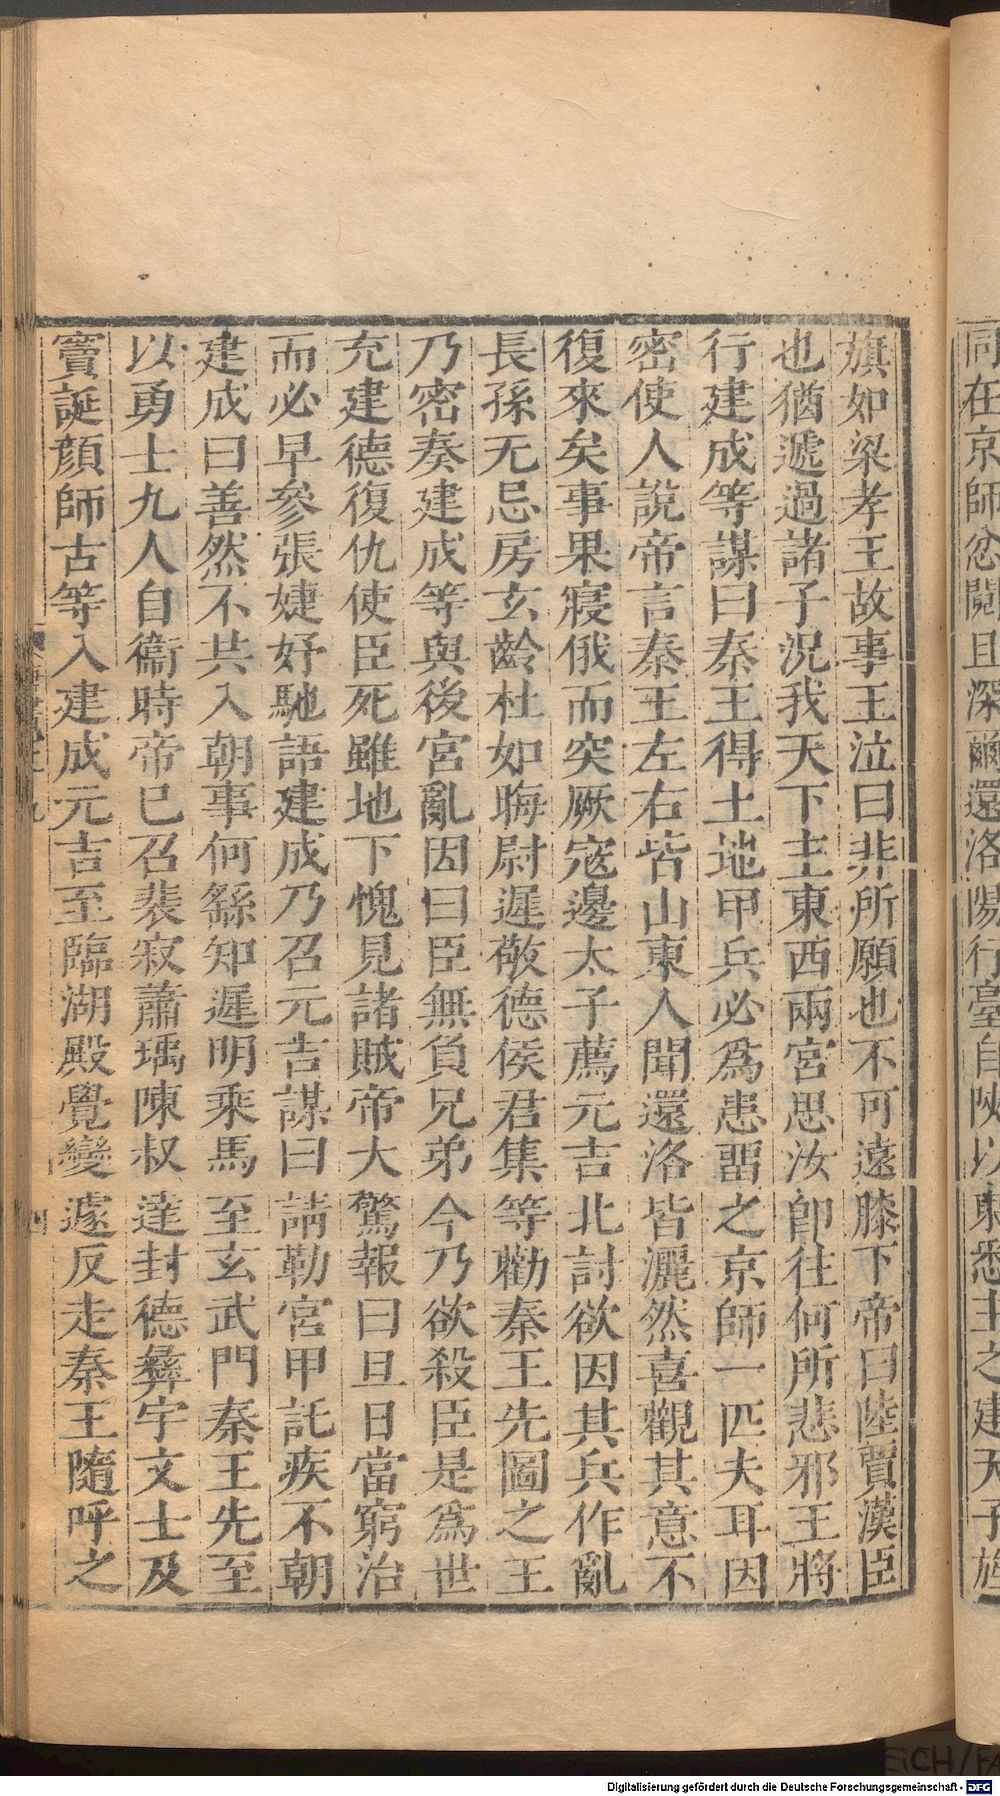 同在京師忿鬩且深爾還洛陽行臺自陝以東悉主之建天子旌
旗如梁孝王故事王泣曰非所願也不可遠膝下帝曰陸賈漢臣
也猶遞過諸子況我天下主東西兩宮思汝卽往何所悲邪王將
行建成等謀曰秦王得土地甲兵必爲患畱之京師一匹夫耳因
密使人說帝言秦王左右皆山東人聞還洛皆灑然喜觀其意不
復來矣事果寢俄而突厥寇邊太子薦元吉北討欲因其兵作亂
長孫无忌房玄齡杜如晦尉遲敬德侯君集等勸秦王先圖之王
乃密奏建成等與後宮亂因曰臣無負兄弟今乃欲殺臣是爲世
充建德復仇使臣死雖地下愧見諸賊帝大驚報曰旦日當窮治
而必早參張婕妤馳語建成乃召元吉謀曰請勒宮甲託疾不朝
建成曰善然不共入朝事何繇知遲明乘馬至玄武門秦王先至
以勇士九人自衞時帝已召裴寂蕭瑀陳叔達封德彝宇文士及
竇誕顏師古等入建成元吉至臨湖殿覺變遽反走秦王隨呼之
Digitalisierung gefördert durch die Deutsche Forschungsgemeinschaft - DFG